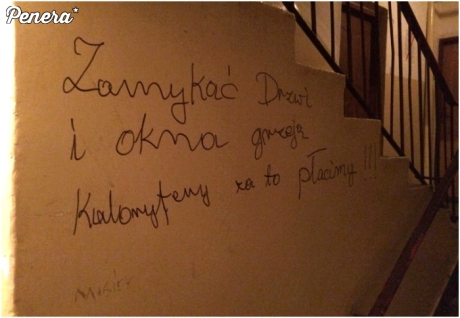 Penera*
Zamykać Drzwi
i okna grzeją
Kaloryfery za to płacimy!!!